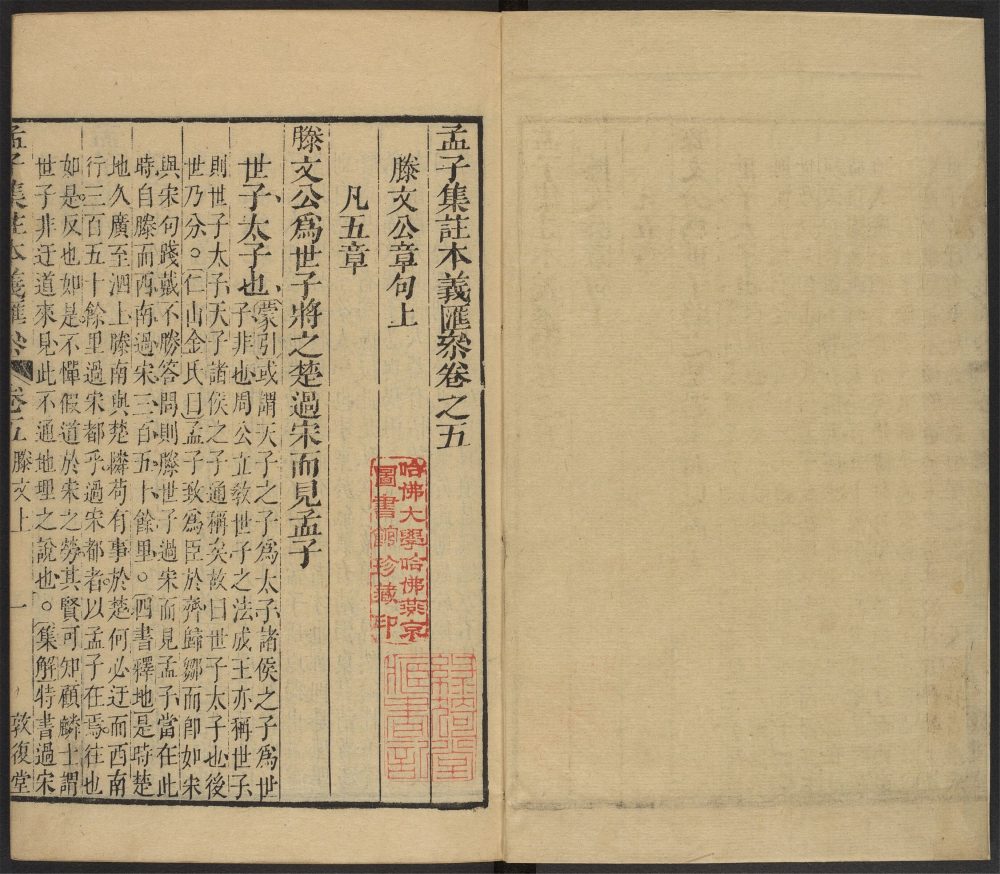 孟子集註本義匯叅卷之五
滕文公章句上
凡五章
滕文公爲世子將之楚過宋而見孟子
世子太子也
蒙引或謂天子之子爲太子諸侯之子爲世
子非也周公立敎世子之法成王亦稱世子
則世子太子天子諸侯之子通稱矣故曰世子太子也後
世乃分○仁山金氏曰孟子致爲臣於齊歸鄒而即如宋
與宋句踐戴不勝答問則滕世子過宋而見孟子當在此
時自滕而西南過宋三百五十餘里○四書釋地是時楚
地久廣至泗上滕南與楚鄰苟有事於楚何必迂而西南
行三百五十餘里過宋都乎過宋都者以孟子在焉往也
如是反也如是不憚假道於宋之勞其賢可知顧麟士謂
世子非迂道來見此不通地理之說也○集解特書過宋
孟子集註本義匯叅 卷五 滕文上 一 敦復堂
哈佛大學哈佛燕京
圖書館珍藏印